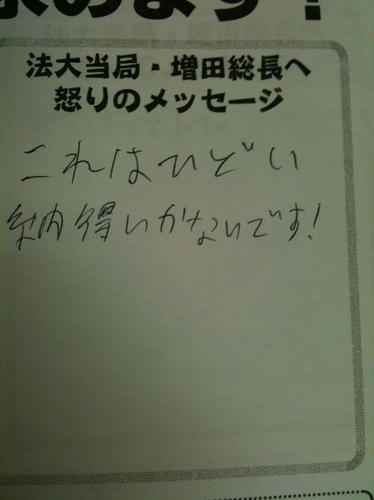 求めます!
法大当局・増田総長へ
怒りのメッセージ
これはひどい
納得いかないです!